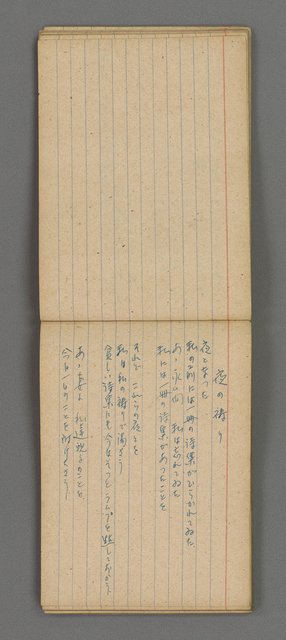 夜の祷り
夜となつた
私の前には一冊の詩集がひらかれてゐた
あゝ永い間 私は忘れてゐた
私には一冊の詩集があつたことを
それで これからの夜々を
私は私の祷りで満さう
貧しい詩集にも今はそつとランプを照しておかう
あゝ妻よ 私達親子のことを
今日一日のことを